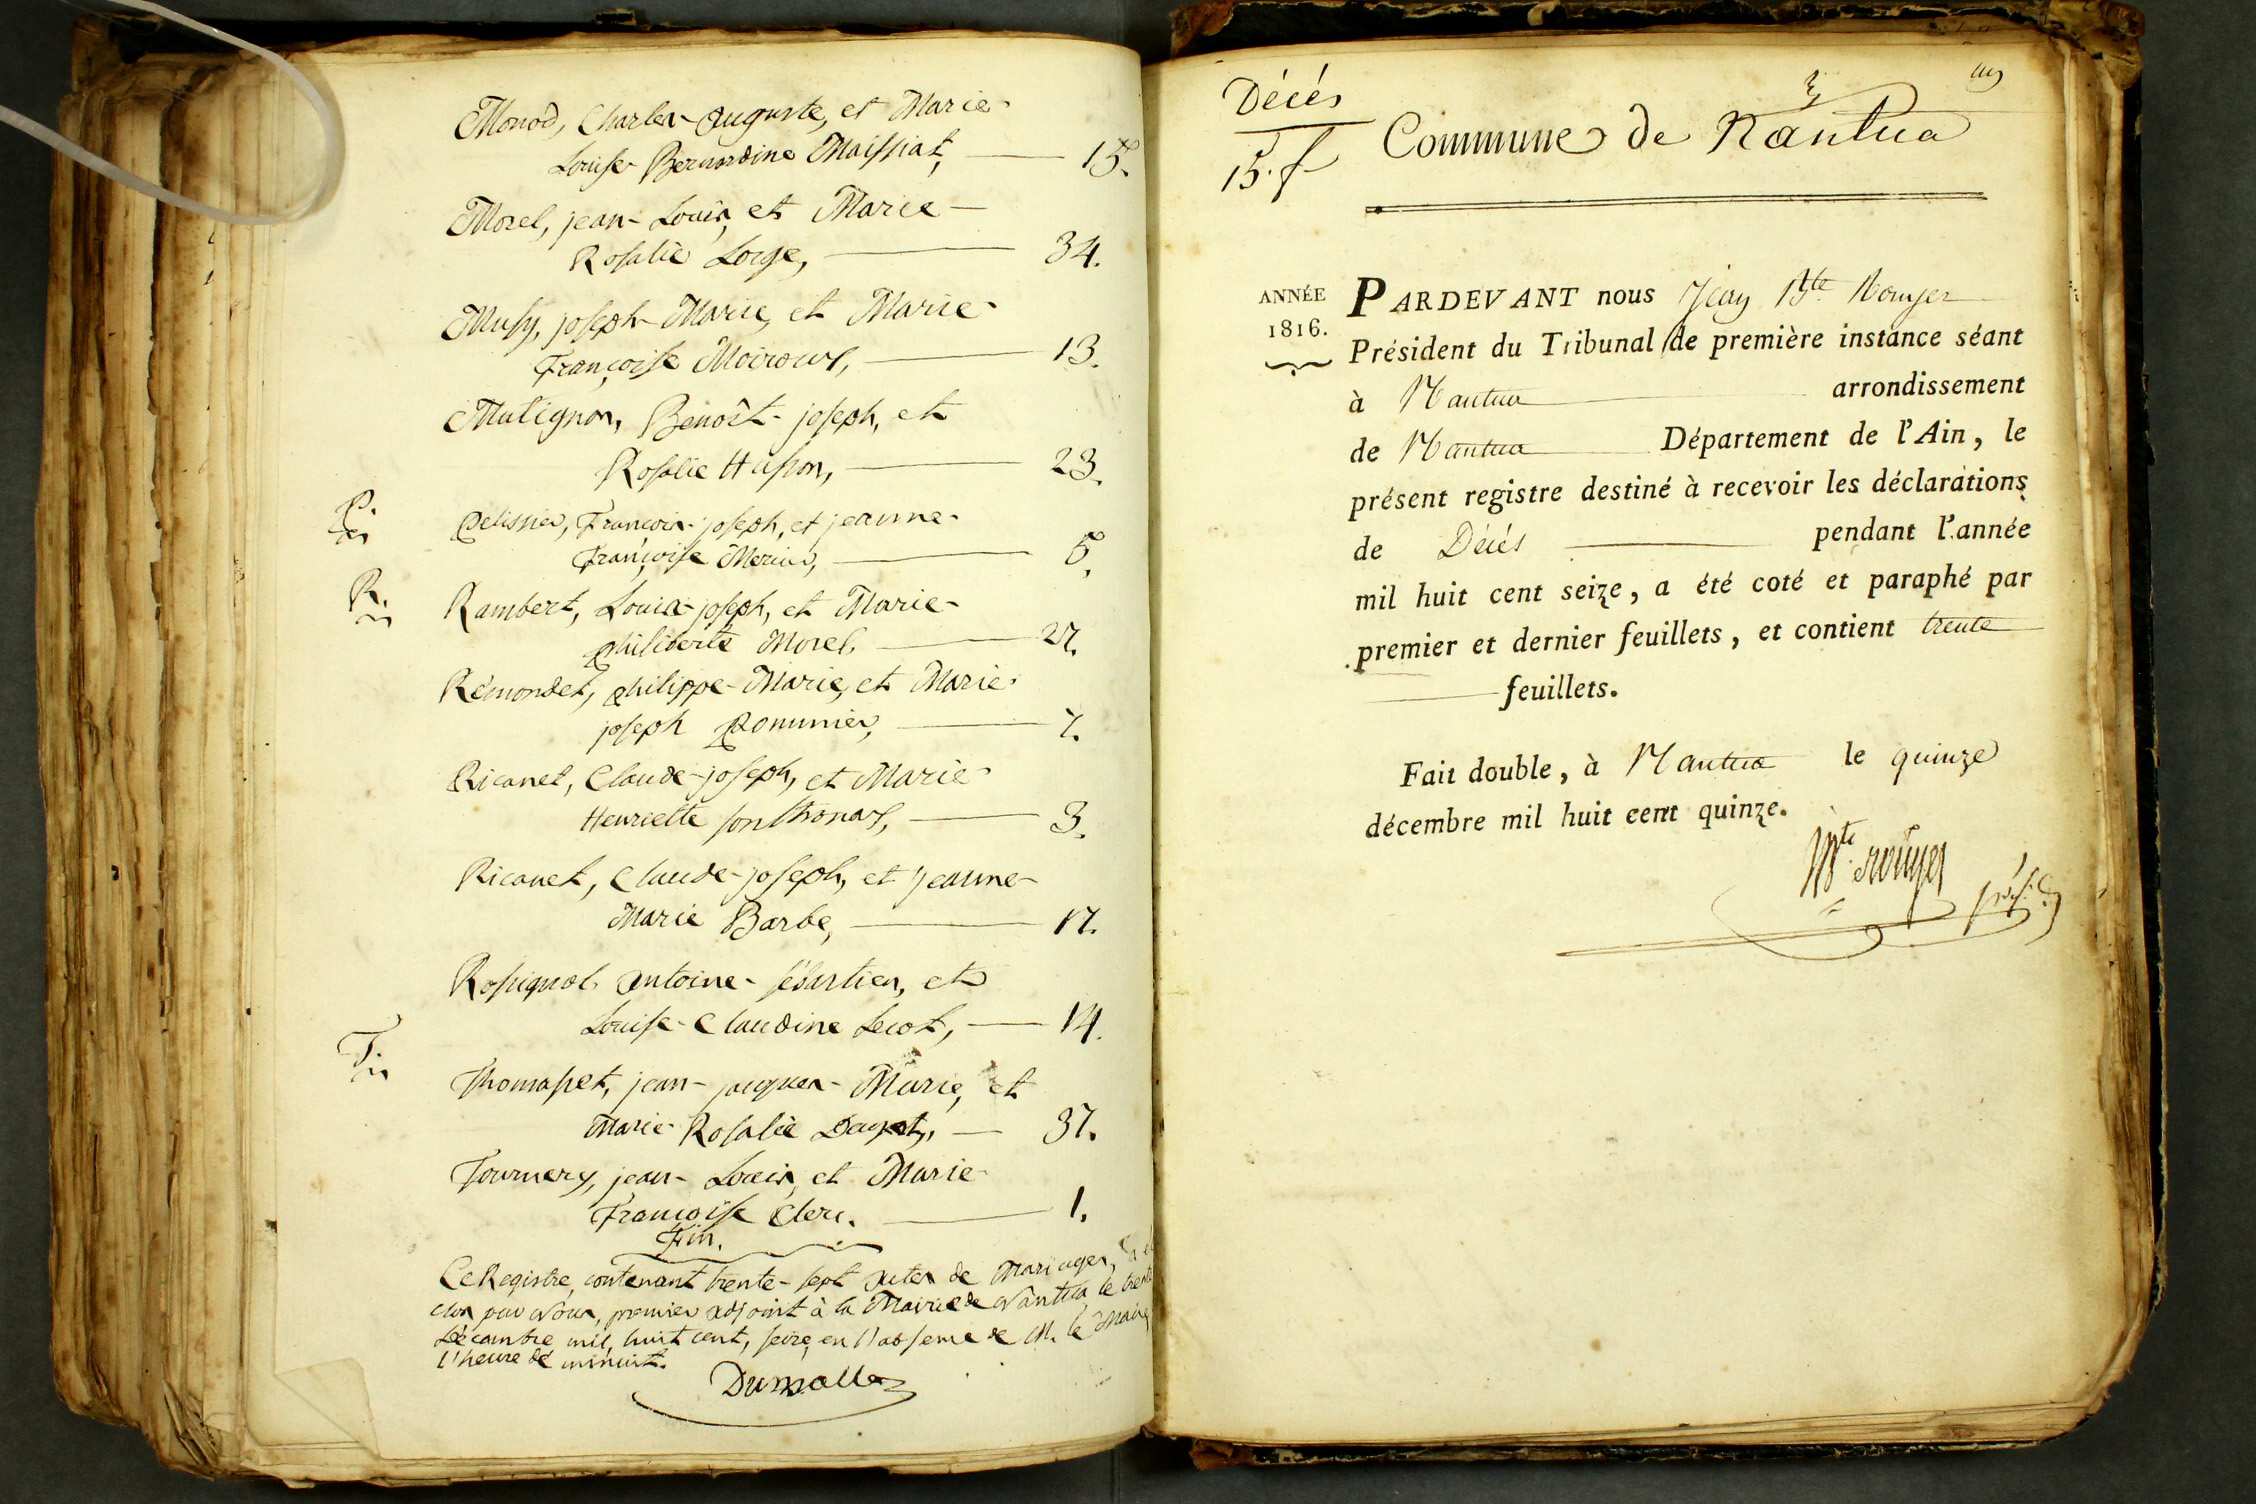 Monod, Charles-Auguste, et Marie-
Louise Bernardine Maissiat, 15.
Morel, jean-Louis, et Marie
Rosalie Lorge, 34.
Musy, joseph-Marie, et Marie-
Françoise Moiroux, 13.
Mutignon, Benoît-joseph, et
Rosalie Husson, 23.
P.
Pelissier, François-joseph, et jeanne-
Françoise Mercier, 5.
R.
Rambert, Louis-joseph, et Marie-
philiberte Morel, 27.
Rémondet, philippe-Marie, et Marie-
joseph 7.
Ricanet, Claude-joseph, et Marie-
Henriette sonthonas, 3.
Ricanet, Claude-joseph, et jeanne-
Marie Barbe, 17.
Rossignol, antoine-sébastien, et
Louise-Claudine Lecot, 14.
T.
Thomasset, jean-jacques-Marie, et
Marie-Rosalie 37.
Tournery, jean-Louis, et Marie-
Françoise Clerc. 1.
Fin.
Ce Registre, contenant trente-sept actes de Mariages, a
clos par Nous, premier adjoint à la Mairie de Nantua le trente
Décembre mil, huit cent, seize, en l'absence de M. le Maire
l'heure de minuit.
Dumolle
Décés
15. f
Commune de Nantua
ANNÉE
1816.
PARDEVANT nous Jean Bte Rouyer
Président du Tribunal de première instance séant
à Nantua arrondissement
de Nantua Département de l'Ain, le
présent registre destiné à recevoir les déclarations
de Décés pendant l'année
mil huit cent seize, a été coté et paraphé par
premier et dernier feuillets, et contient trente
feuillets.
Fait double, à Nantua le quinze
décembre mil huit cent quinze.
Bte Rouyer